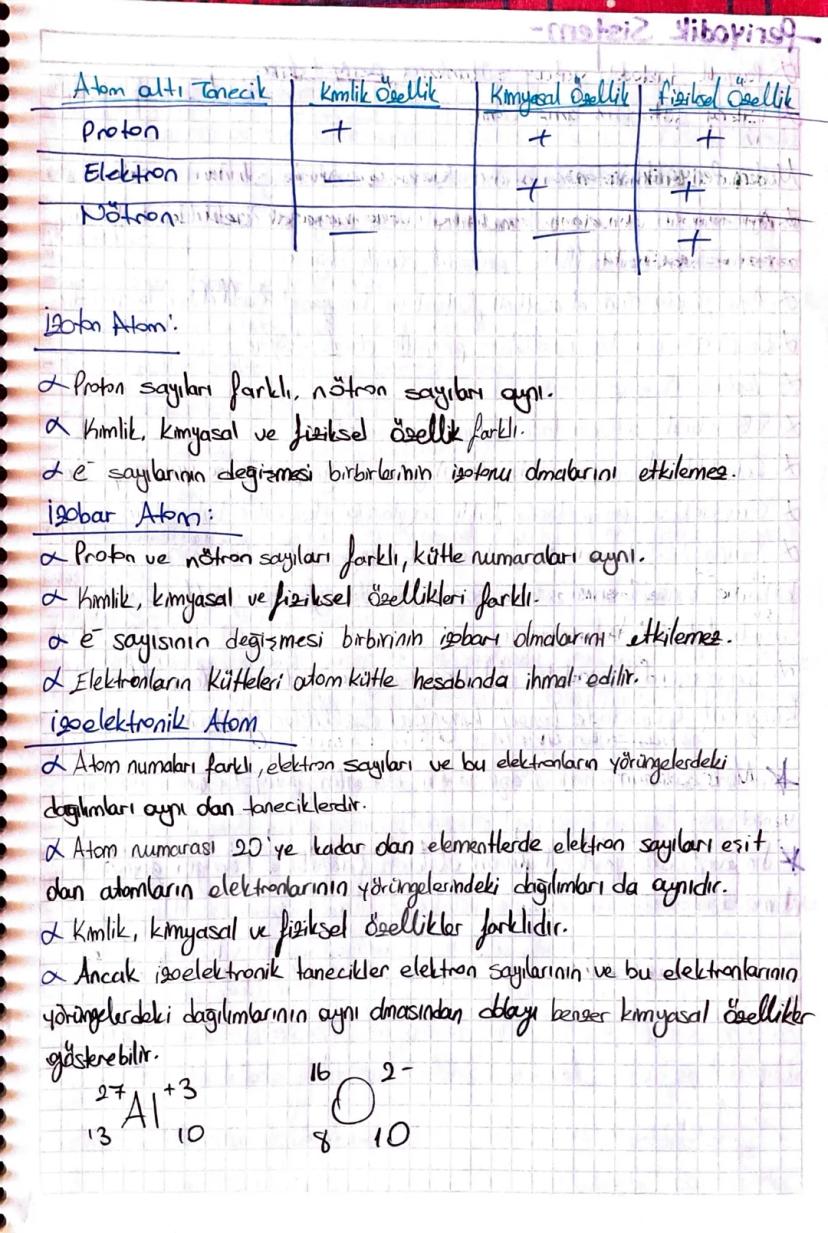 Atom altı Tanecik | Kimlik Özellik | Kimyasal Özellik | fiziksel Özellik
Proton + + +
Elektron — + +
Nötron — — +
izoton Atom:
α Proton sayıları farklı, nötron sayıları aynı.
α Kimlik, kimyasal ve fiziksel özellik farklı.
α e⁻ sayılarının değişmesi birbirlerinin izotonu olmalarını etkilemez.
izobar Atom:
α Proton ve nötron sayıları farklı, kütle numaraları aynı.
α Kimlik, kimyasal ve fiziksel özellikleri farklı.
α e⁻ sayısının değişmesi birbirinin izobarı olmalarını etkilemez.
α Elektronların kütleleri atom kütle hesabında ihmal edilir.
izoelektronik Atom
α Atom numaları farklı, elektron sayıları ve bu elektronların yörüngelerdeki
dağılımları aynı olan taneciklerdir.
α Atom numarası 20'ye kadar olan elementlerde elektron sayıları eşit
olan atomların elektronlarının yörüngelerindeki dağılımları da aynıdır.
α Kimlik, kimyasal ve fiziksel özellikler farklıdır.
α Ancak izoelektronik tanecikler elektron sayılarının ve bu elektronlarının
yörüngelerdeki dağılımlarının aynı olmasından dolayı benzer kimyasal özellikler
gösterebilir.
27 Al +3 16 O 2-
13 10 8 10